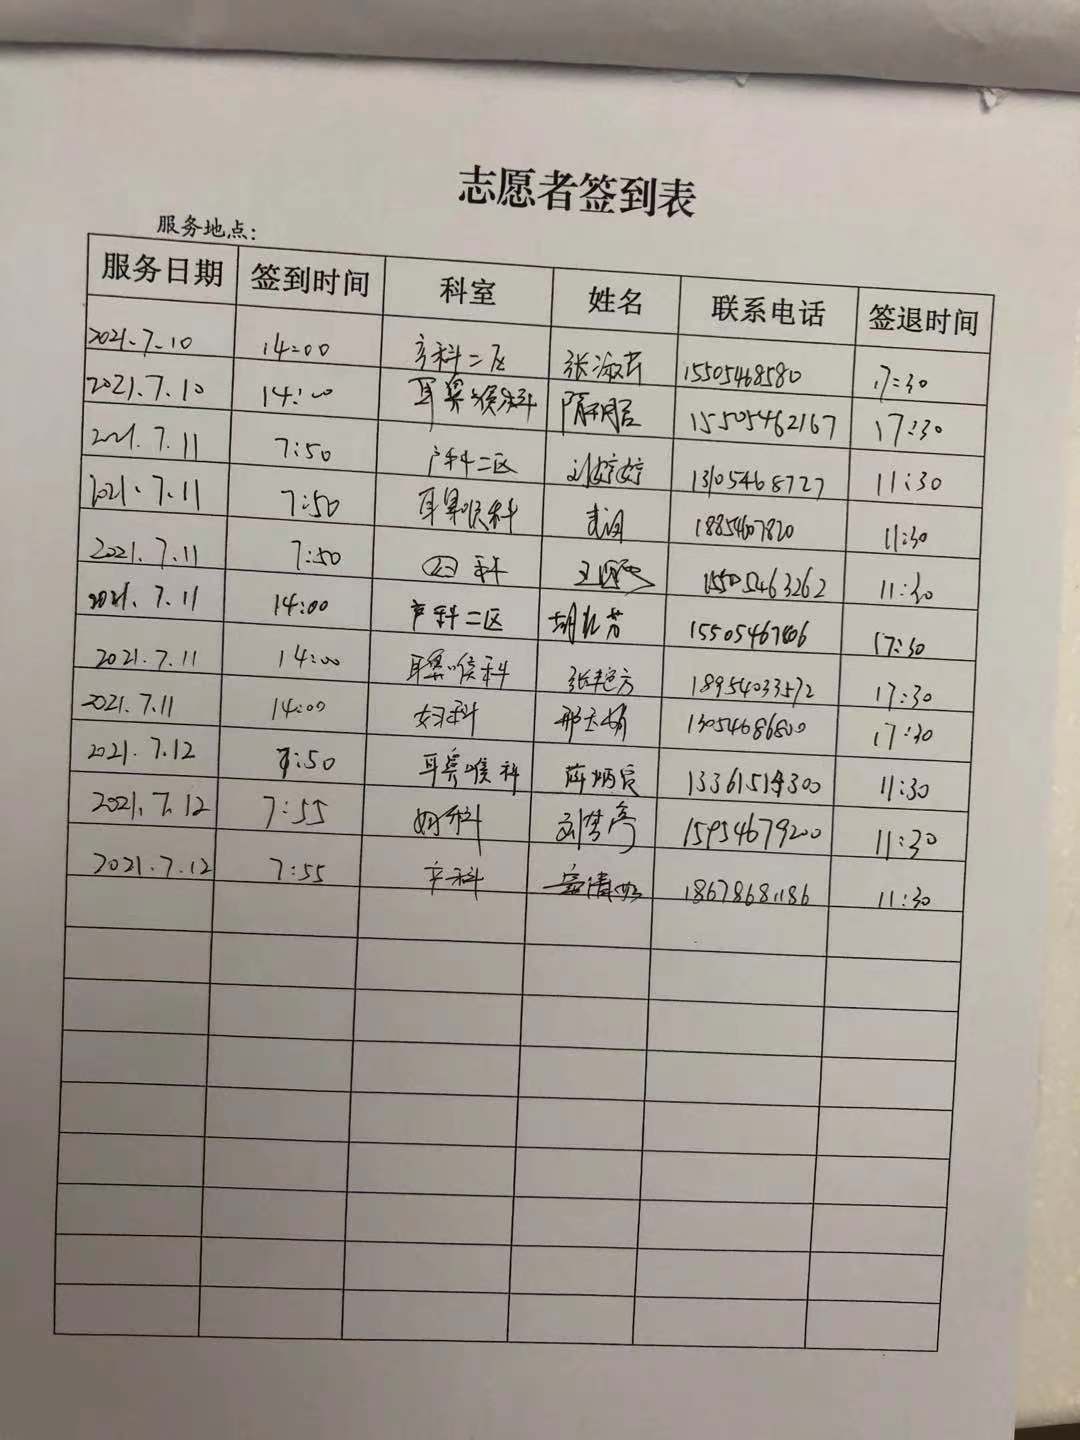 志愿者签到表
服务地点:
服务日期 签到时间 科室 姓名 联系电话 签退时间
2021.7.10 14:00 产科二区 张淑芹 15505468580 17:30
2021.7.10 14:00 耳鼻喉科 15505462167 17:30
2021.7.11 7:50 产科二区 刘婷婷 13105468727 11:30
2021.7.11 7:50 耳鼻喉科 11:30
2021.7.11 7:50 科 15505463262 11:30
2021.7.11 14:00 产科二区 17:30
2021.7.11 14:00 耳鼻喉科 张艳方 18954033572 17:30
2021.7.11 14:00 妇科 13054686800 17:30
2021.7.12 7:50 耳鼻喉科 11:30
2021.7.12 7:55 妇科 15954679200 11:30
2021.7.12 7:55 科 18678681186 11:30